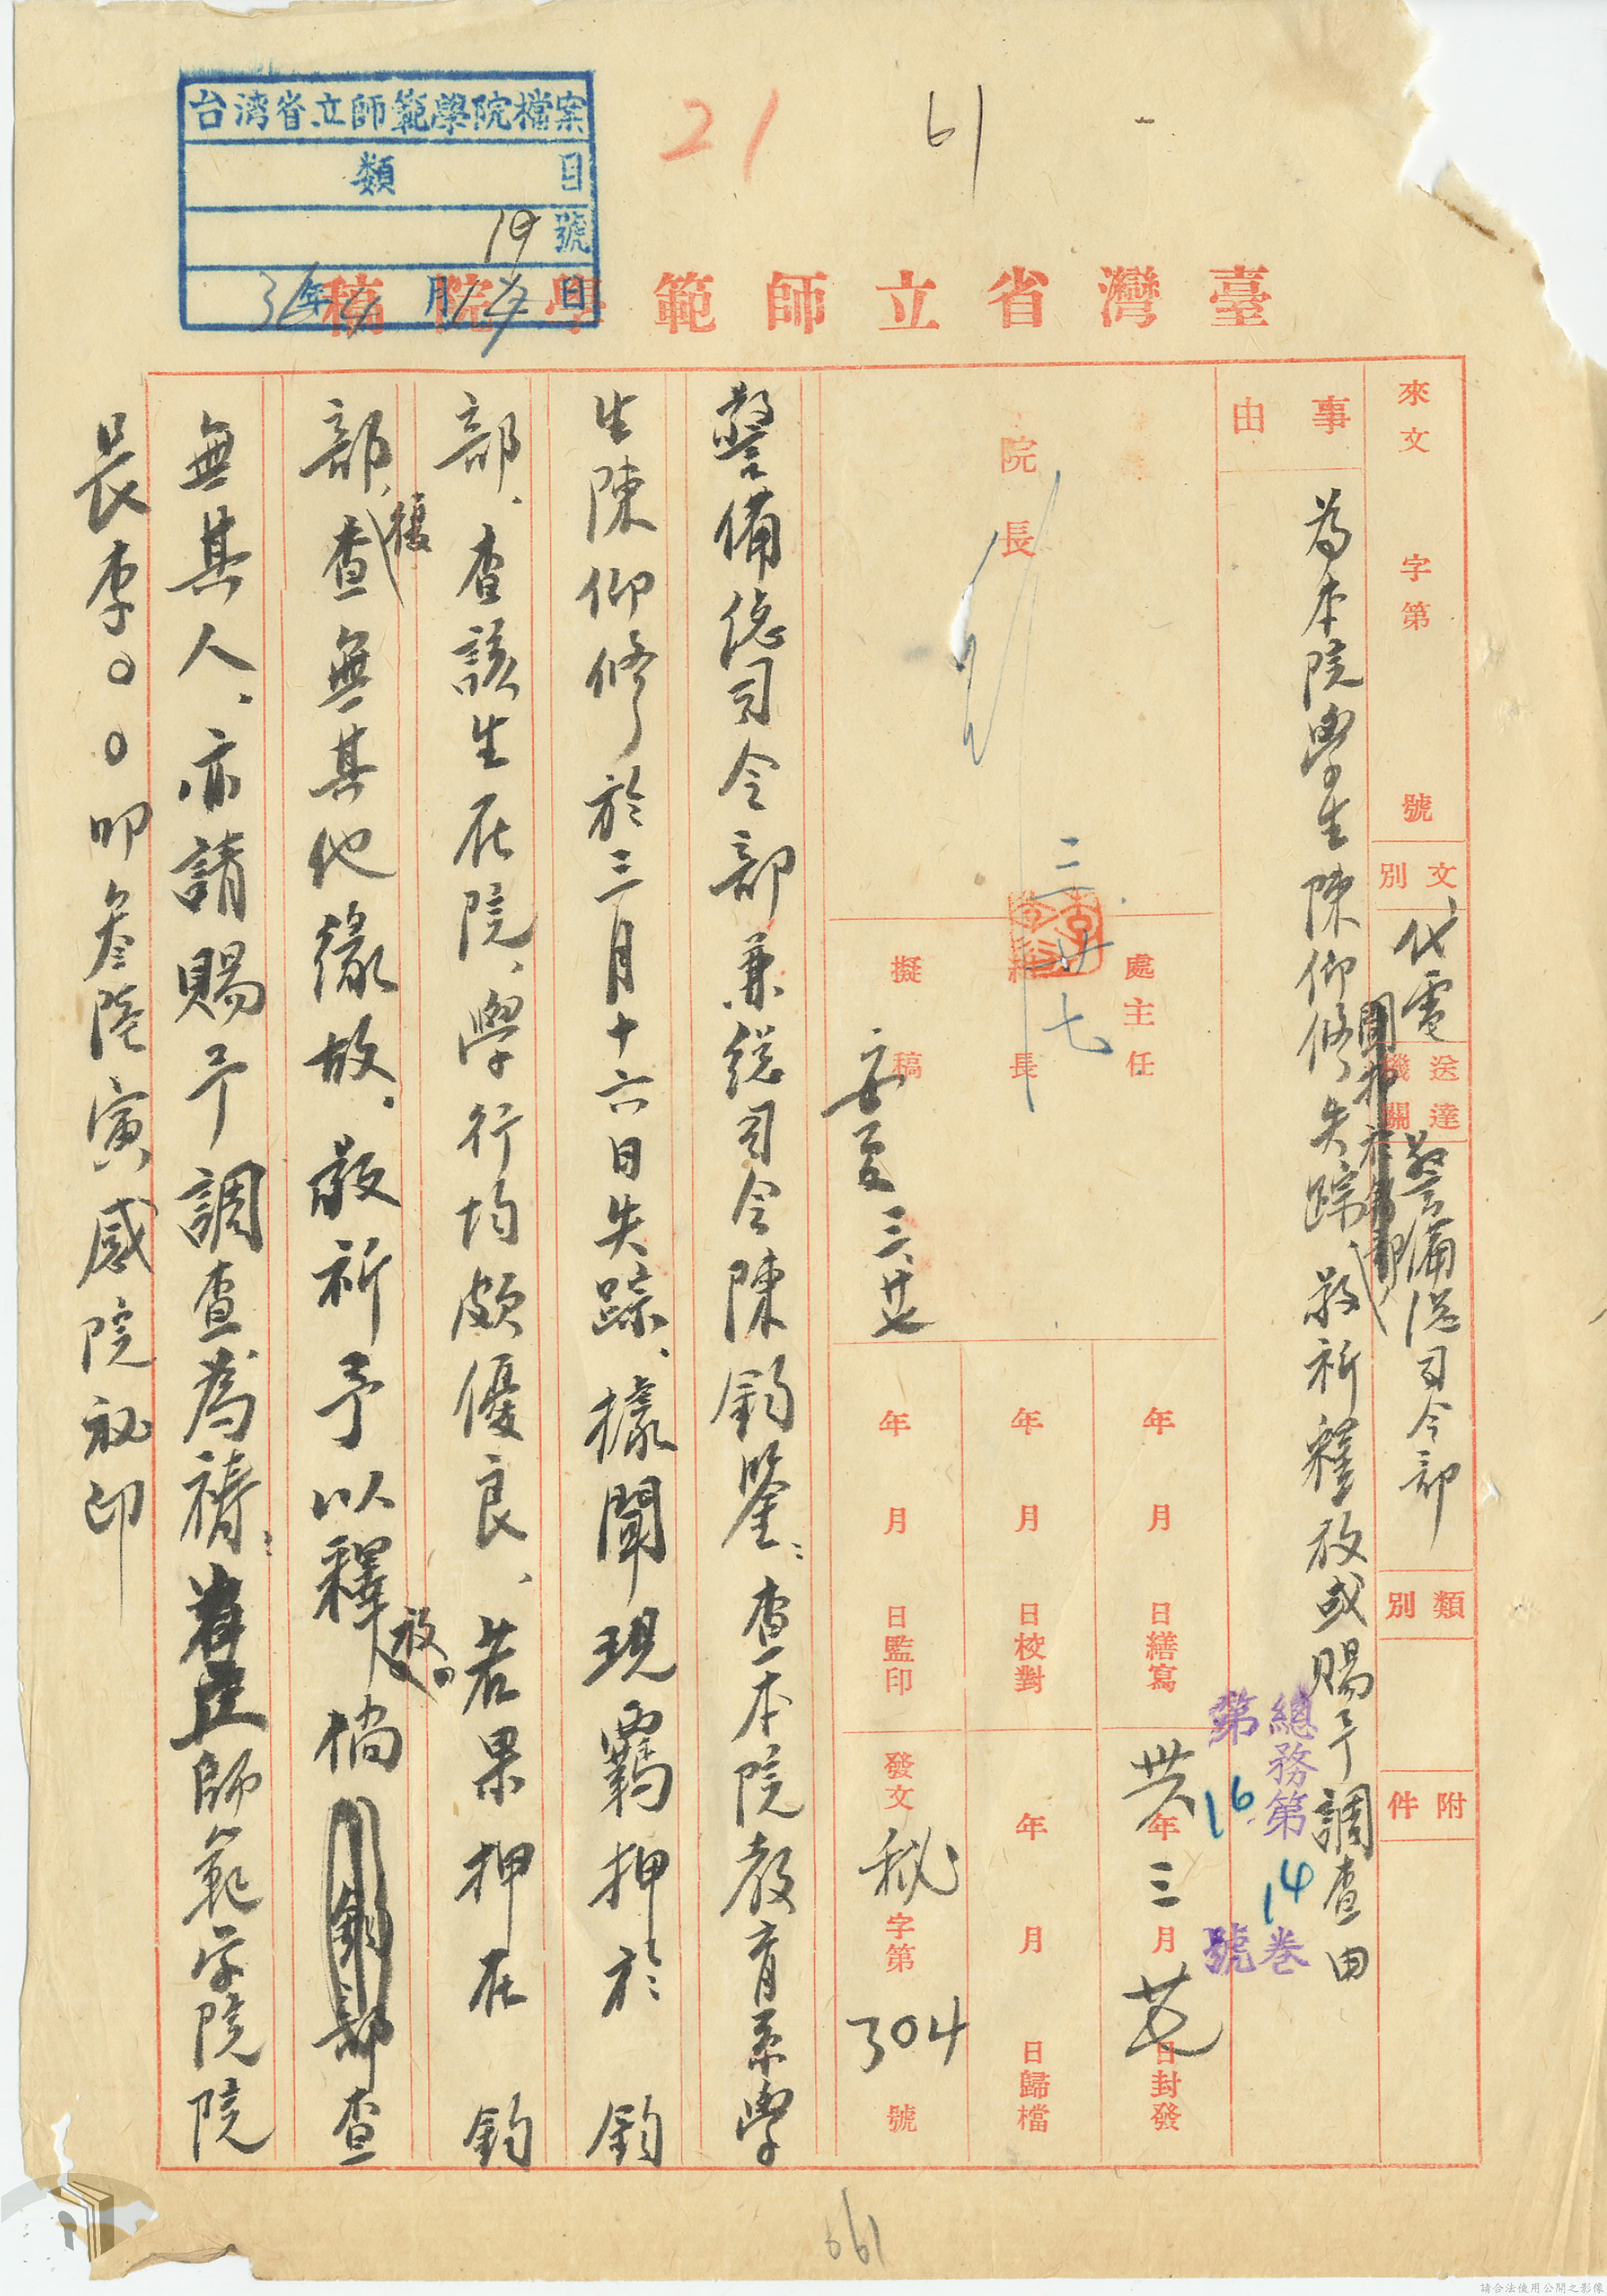 台湾省立師範學院檔案
類 目
19 號
36年4月14日
21
61
臺灣省立師範學院稿
來文 字第 號
文別 代電
送達機關 警備總司令部
類別
附件
事由 為本院學生陳仰修失踪敬祈釋放或賜予調查由
總務第14卷
第16號
院長
三 廿七
處主任
科長
擬稿
三、廿七
年 月 日繕寫
年 月 日校對
年 月 日監印
卅六年三月廿七日封發
年 月 日歸檔
發文秘字第304號
警備總司令部兼總司令陳鈞鑒:查本院教育系學
生陳仰修於三月十六日失踪、據聞現羈押於 鈞
部、查該生在院、學行均頗優良、若果押在 鈞
部、復查無其他緣故、敬祈予以釋放。倘 鈞部查
無其人、亦請賜予調查為禱:師範学院院
長李〇〇叩叁陸寅感院秘印
661
請合法使用公開之影像